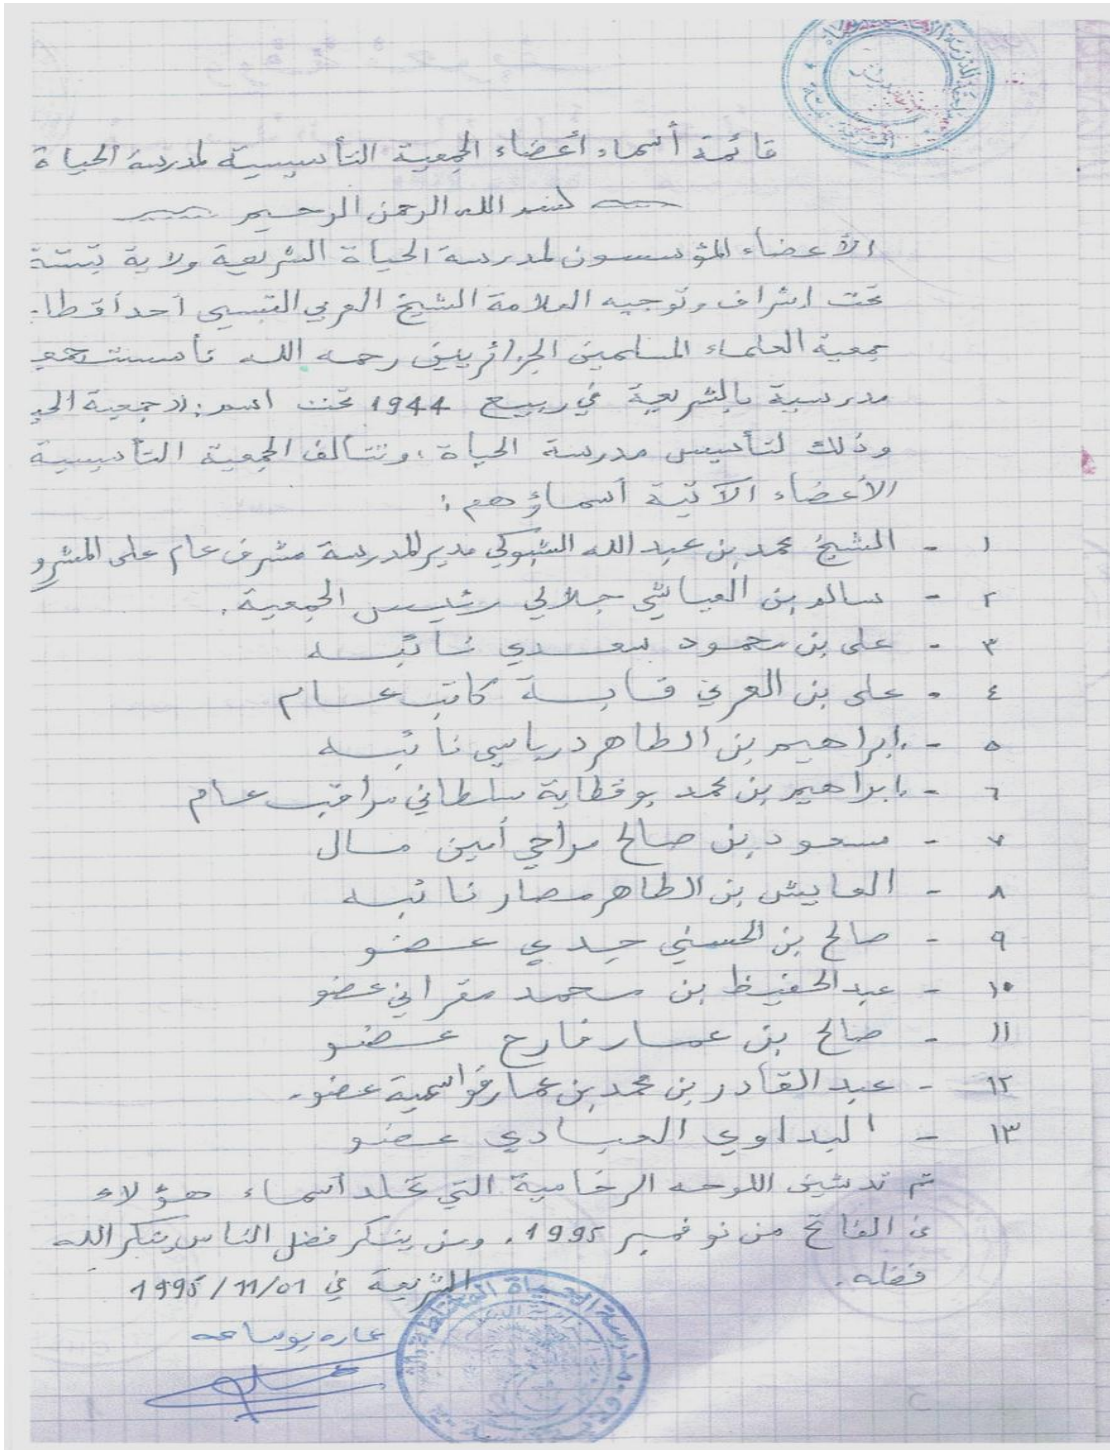 قائمة أسماء أعضاء الجمعية التأسيسية لمدرسة الحياة
بسم الله الرحمن الرحيم
الأعضاء المؤسسون لمدرسة الحياة الشريعة ولاية تبسة
تحت إشراف وتوجيه العلامة الشيخ العربي التبسي أحد أقطا.
جمعية العلماء المسلمين الجزائريين رحمه الله تأسست جمع
مدرسية بالشريعة في ربيع 1944 تحت اسم: "جمعية الحي
وذلك لتأسيس مدرسة الحياة، وتتألف الجمعية التأسيسية
الأعضاء الآتية أسماؤهم:
١ - الشيخ محمد بن عبد الله الشبوكي مدير المدرسة مشرف عام على المشرو
٢ - سالم بن العياشي جلالي رئيس الجمعية.
٣ - علي بن محمود سعدي نائبه
٤ - علي بن العربي قابسة كاتب عام
٥ - إبراهيم بن الطاهر درباسي نائبه
٦ - إبراهيم بن محمد بوقطاية سلطاني مراقب عام
٧ - مسعود بن صالح مراحي أمين مال
٨ - العايش بن الطاهر مصار نائبه
٩ - صالح بن الحسني جدي عضو
١٠ - عبد الحفيظ بن محمد مقراني عضو
١١ - صالح بن عمار فارح عضو
١٢ - عبد القادر بن محمد بن عمار قواسمية عضو.
١٣ - البداوي العبادي عضو
تم تدشين اللوحه الرخامية التي تخلد أسماء هؤلاء
في الفاتح من نوفمبر 1995. ومن ينكر فضل الناس ينكر الله
فضله.
الشريعة في 1995/11/01
عماره بوساحه
مدرسة الحياة المختلطة